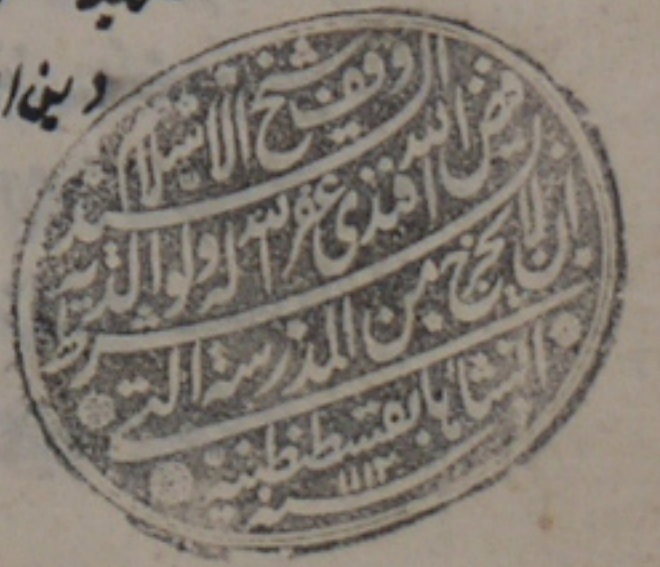 وقف شيخ الاسلام السيد
فيض الله افندى غفر الله له ولوالديه بشرط
ان لا يخرج من المدرسة التى
انشاها بقسطنطينية
سنه ١١١٣